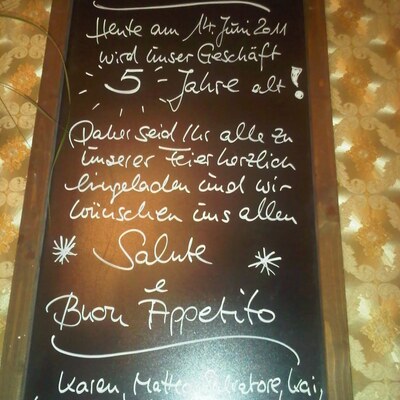 Heute am 14. Juni 2011
wird unser Geschäft
5 Jahre alt!
Daher seid Ihr alle zu
unserer Feier herzlich
eingeladen und wir
wünschen uns allen
Salute
e
Buon Appetito
Karen, Matteo, Salvatore, Kai,